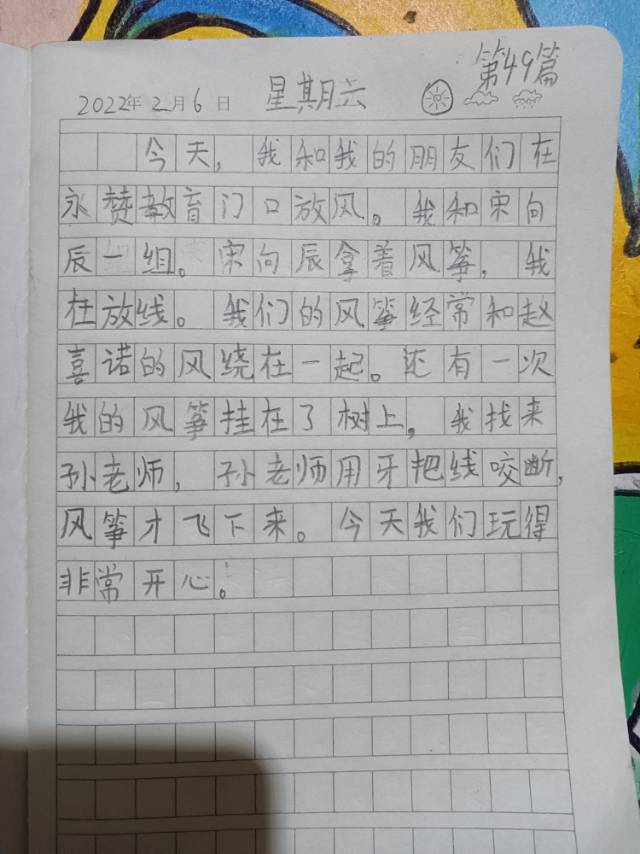 第49篇
2022年2月6日 星期六
今天，我和我的朋友们在
永赞教育门口放风。我和宋向
辰一组。宋向辰拿着风筝，我
在放线。我们的风筝经常和赵
喜诺的风绕在一起。还有一次
我的风筝挂在了树上，我找来
孙老师，孙老师用牙把线咬断，
风筝才飞下来。今天我们玩得
非常开心。